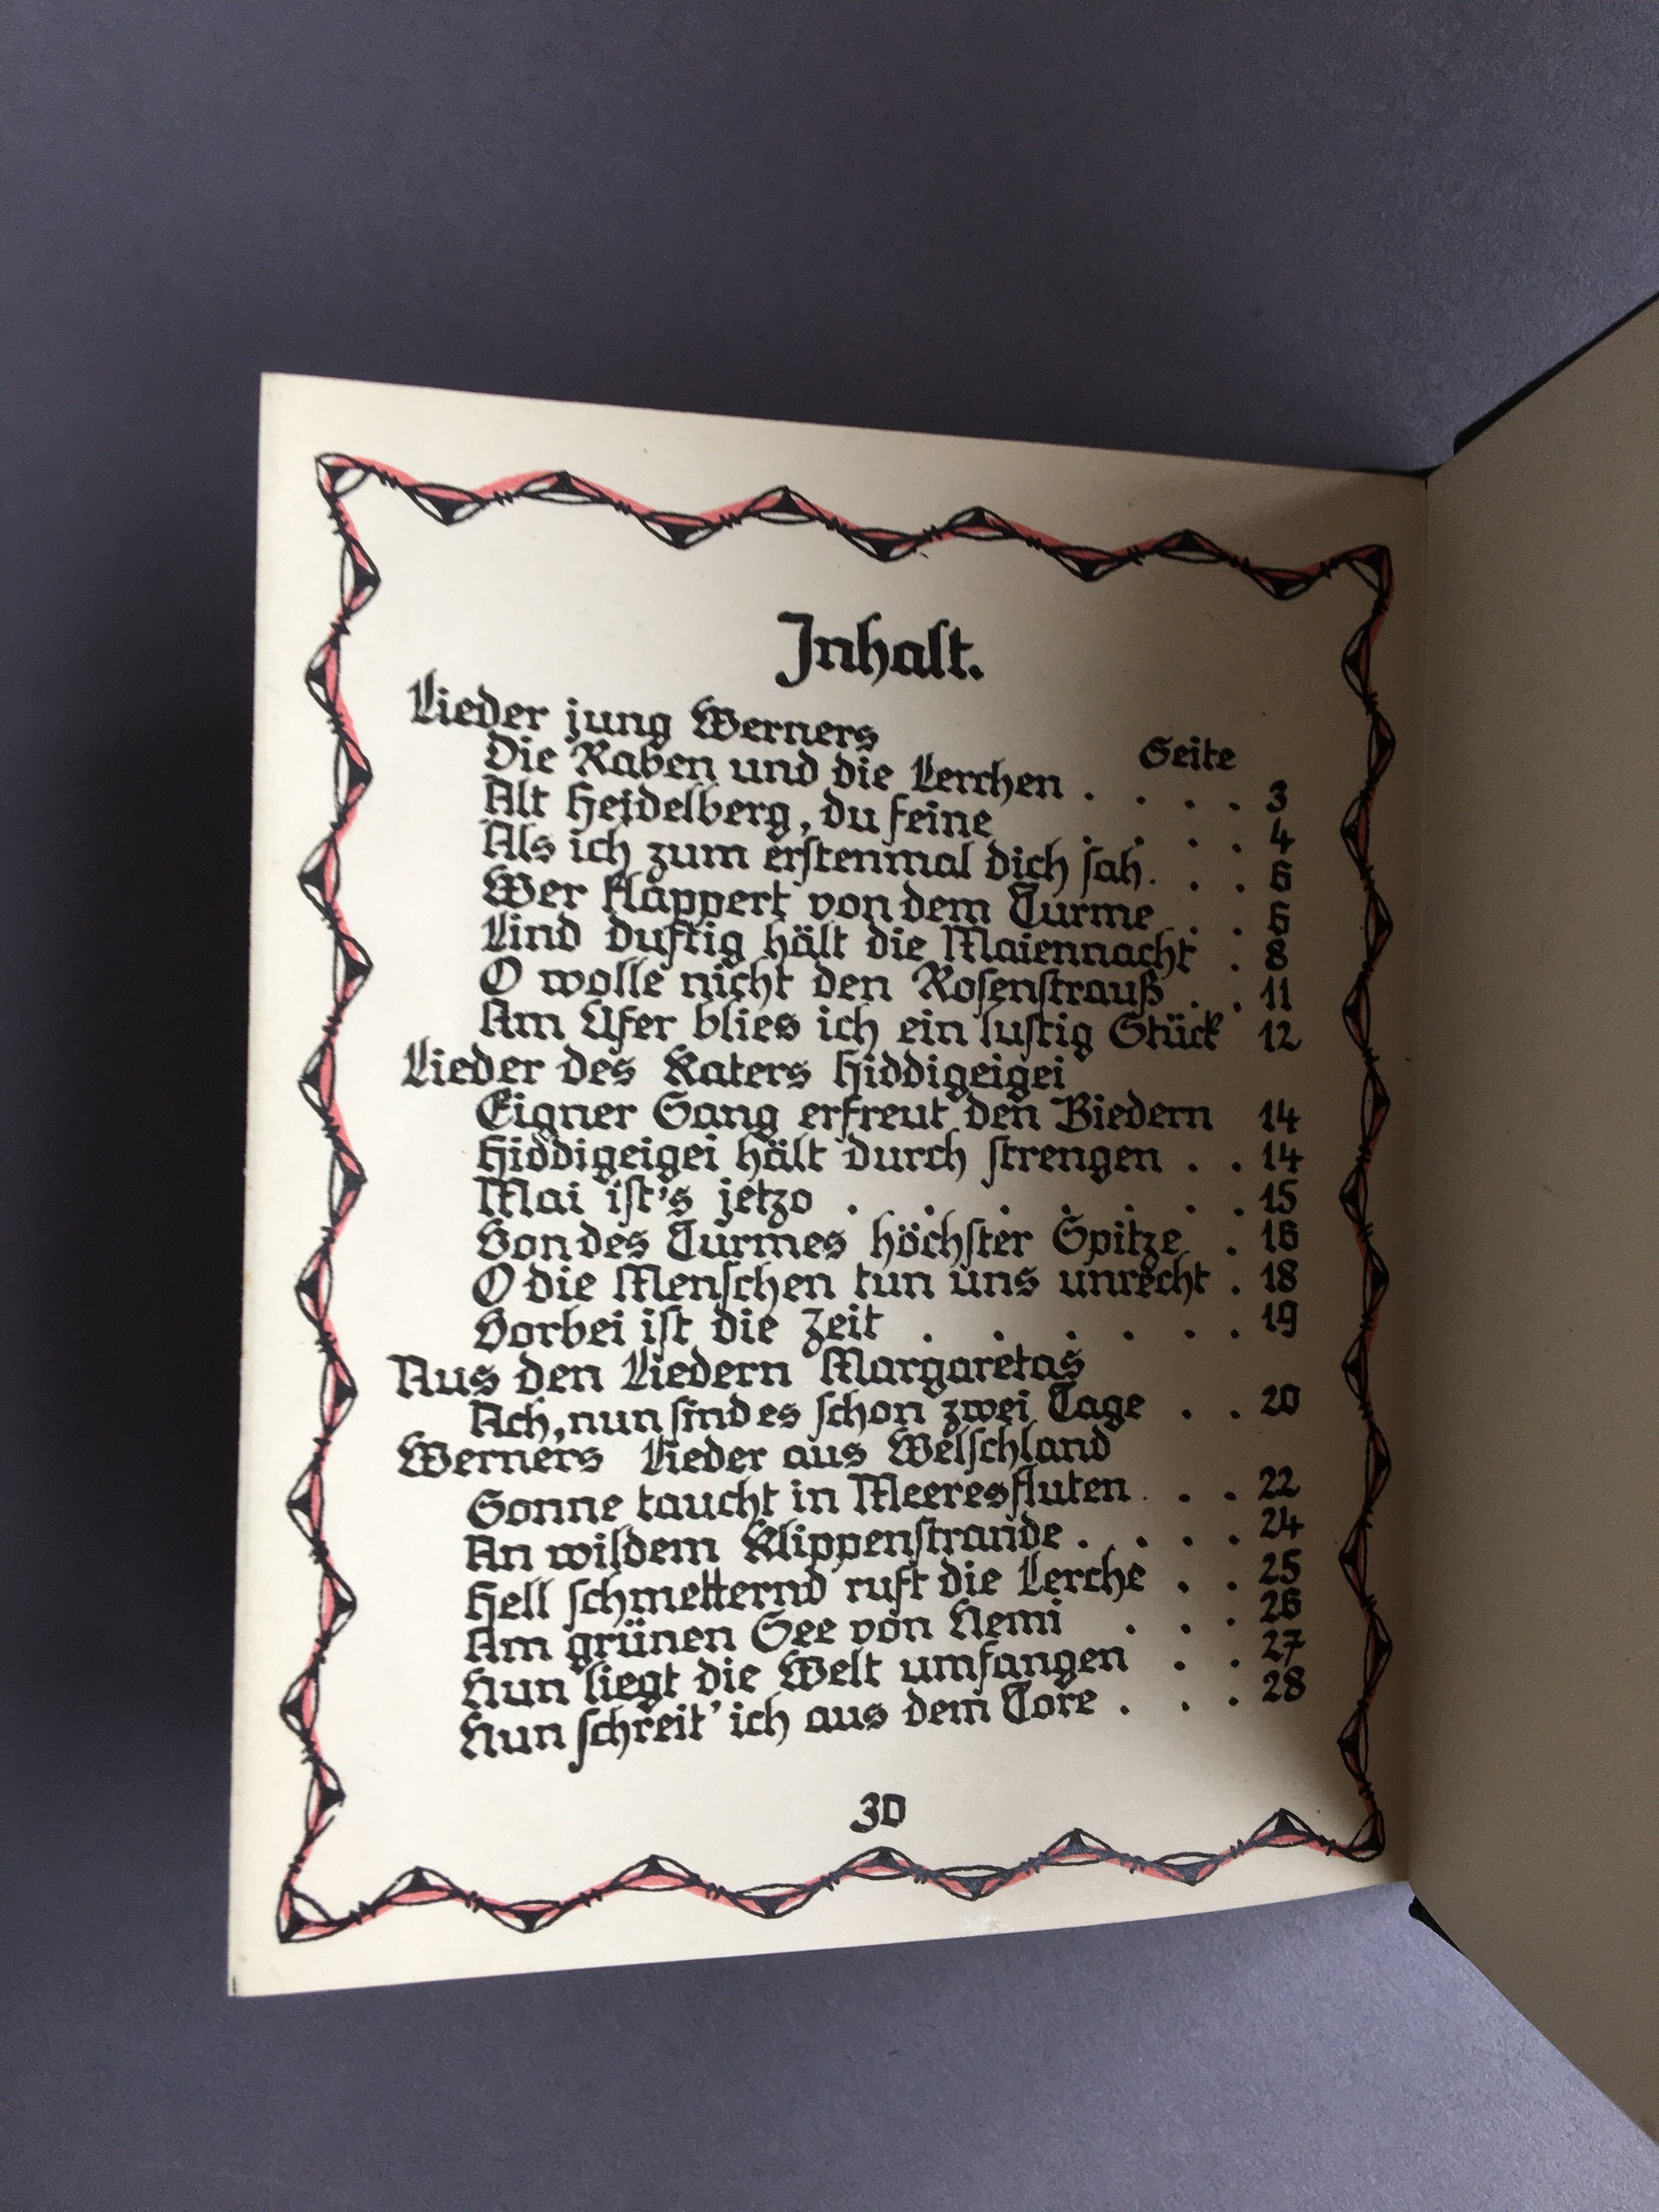 Inhalt.
Lieder jung Werners
Seite
Die Raben und die Lerchen . . . . 3
Alt Heidelberg, du feine . . . . 4
Als ich zum erſtenmal dich ſah. . . 6
Wer klappert von dem Turme . . 6
Lind duftig hält die Maiennacht . 8
O wolle nicht den Roſenſtrauß . . 11
Am Ufer blies ich ein luſtig Stück 12
Lieder des Katers Hiddigeigei
Eigner Sang erfreut den Biedern 14
Hiddigeigei hält durch ſtrengen . . 14
Mai iſt's jetzo . . . . . . . 15
Von des Turmes höchſter Spitze . 16
O die Menſchen tun uns unrecht . 18
Vorbei iſt die Zeit . . . . . . 19
Aus den Liedern Margaretas
Ach, nun ſind es ſchon zwei Tage . . 20
Werners Lieder aus Welſchland
Sonne taucht in Meeresfluten . . . 22
An wildem Klippenſtrande . . . . 24
Hell ſchmetternd ruft die Lerche . . 25
Am grünen See von Nemi . . . 26
Nun liegt die Welt umfangen . . 27
Nun ſchreit' ich aus dem Tore . . . 28
30